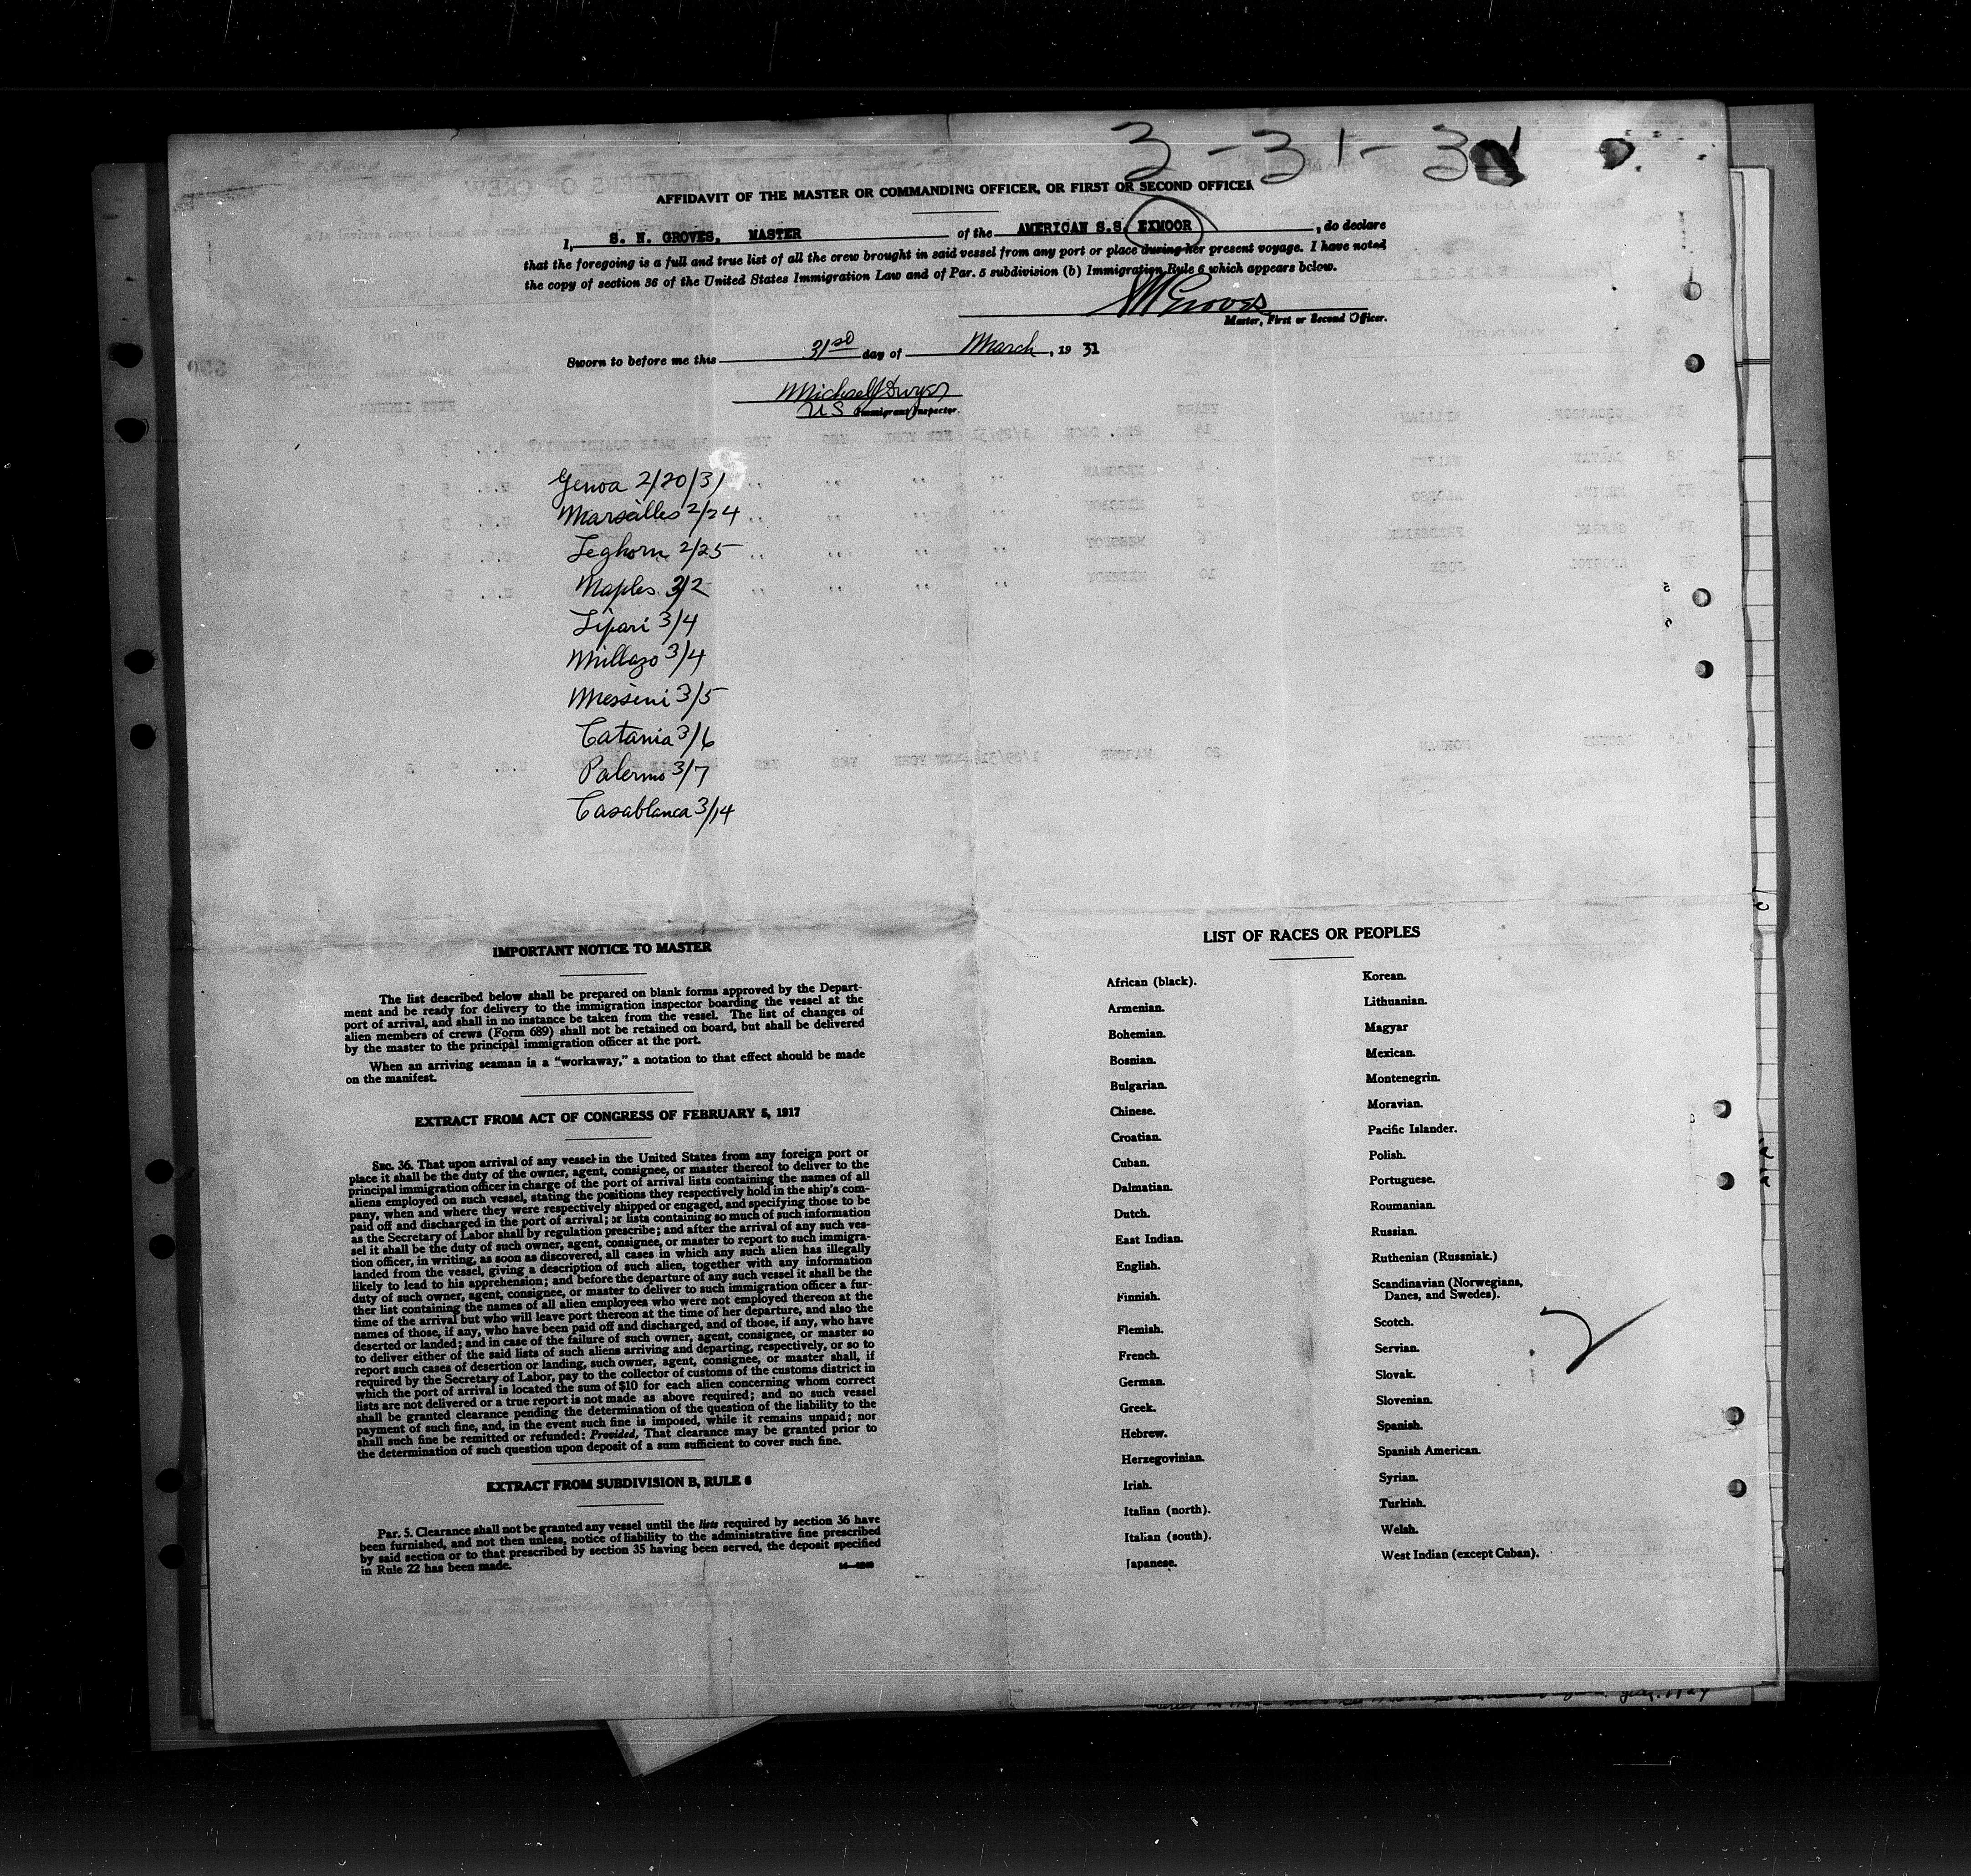 3-31-3
AFFIDAVIT OF THE MASTER OR COMMANDING OFFICER, OR FIRST OR SECOND OFFICER
I, S. N. GROVES, MASTER of the AMERICAN S.S. EXMOOR, do declare
that the foregoing is a full and true list of all the crew brought in said vessel from any port or place during her present voyage. I have noted
the copy of section 36 of the United States Immigration Law and of Par. 5 subdivision (b) Immigration Rule 6 which appears below.
SN Groves
Master, First or Second Officer.
Sworn to before me this 31st day of March, 19 31
Michael J Dwyer
US Immigrant Inspector.
Genoa 2/20/31
Marsailles 2/24
Leghorn 2/25
Naples 3/2
Lipari 3/4
Millazo 3/4
Messini 3/5
Catania 3/6
Palermo 3/7
Casablanca 3/14
IMPORTANT NOTICE TO MASTER
The list described below shall be prepared on blank forms approved by the Depart-
ment and be ready for delivery to the immigration inspector boarding the vessel at the
port of arrival, and shall in no instance be taken from the vessel. The list of changes of
alien members of crews (Form 689) shall not be retained on board, but shall be delivered
by the master to the principal immigration officer at the port.
When an arriving seaman is a "workaway," a notation to that effect should be made
on the manifest.
EXTRACT FROM ACT OF CONGRESS OF FEBRUARY 5, 1917
SEC. 36. That upon arrival of any vessel in the United States from any foreign port or
place it shall be the duty of the owner, agent, consignee, or master thereof to deliver to the
principal immigration officer in charge of the port of arrival lists containing the names of all
aliens employed on such vessel, stating the positions they respectively hold in the ship's com-
pany, when and where they were respectively shipped or engaged, and specifying those to be
paid off and discharged in the port of arrival; or lists containing so much of such information
as the Secretary of Labor shall by regulation prescribe; and after the arrival of any such ves-
sel it shall be the duty of such owner, agent, consignee, or master to report to such immigra-
tion officer, in writing, as soon as discovered, all cases in which any such alien has illegally
landed from the vessel, giving a description of such alien, together with any information
likely to lead to his apprehension; and before the departure of any such vessel it shall be the
duty of such owner, agent, consignee, or master to deliver to such immigration officer a fur-
ther list containing the names of all alien employees who were not employed thereon at the
time of the arrival but who will leave port thereon at the time of her departure, and also the
names of those, if any, who have been paid off and discharged, and of those, if any, who have
deserted or landed; and in case of the failure of such owner, agent, consignee, or master so
to deliver either of the said lists of such aliens arriving and departing, respectively, or so to
report such cases of desertion or landing, such owner, agent, consignee, or master shall, if
required by the Secretary of Labor, pay to the collector of customs of the customs district in
which the port of arrival is located the sum of $10 for each alien concerning whom correct
lists are not delivered or a true report is not made as above required; and no such vessel
shall be granted clearance pending the determination of the question of the liability to the
payment of such fine, and, in the event such fine is imposed, while it remains unpaid; nor
shall such fine be remitted or refunded: Provided, That clearance may be granted prior to
the determination of such question upon deposit of a sum sufficient to cover such fine.
EXTRACT FROM SUBDIVISION B, RULE 6
Par. 5. Clearance shall not be granted any vessel until the lists required by section 36 have
been furnished, and not then unless, notice of liability to the administrative fine prescribed
by said section or to that prescribed by section 35 having been served, the deposit specified
in Rule 22 has been made.
LIST OF RACES OR PEOPLES
African (black).
Armenian.
Bohemian.
Bosnian.
Bulgarian.
Chinese.
Croatian.
Cuban.
Dalmatian.
Dutch.
East Indian.
English.
Finnish.
Flemish.
French.
German.
Greek.
Hebrew.
Herzegovinian.
Irish.
Italian (north).
Italian (south).
Japanese.
Korean.
Lithuanian.
Magyar
Mexican.
Montenegrin.
Moravian.
Pacific Islander.
Polish.
Portuguese.
Roumanian.
Russian.
Ruthenian (Russniak.)
Scandinavian (Norwegians,
Danes, and Swedes).
Scotch.
Servian.
Slovak.
Slovenian.
Spanish.
Spanish American.
Syrian.
Turkish.
Welsh.
West Indian (except Cuban).
2